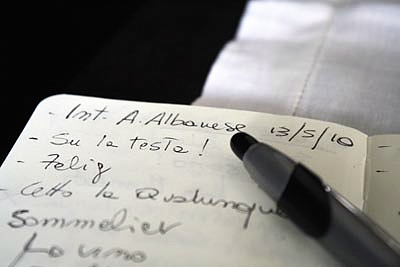 - Int. A. Albanese 13/5/10
- Su la testa!
- Feliz
- Cetto la Qualunque
Sommelier